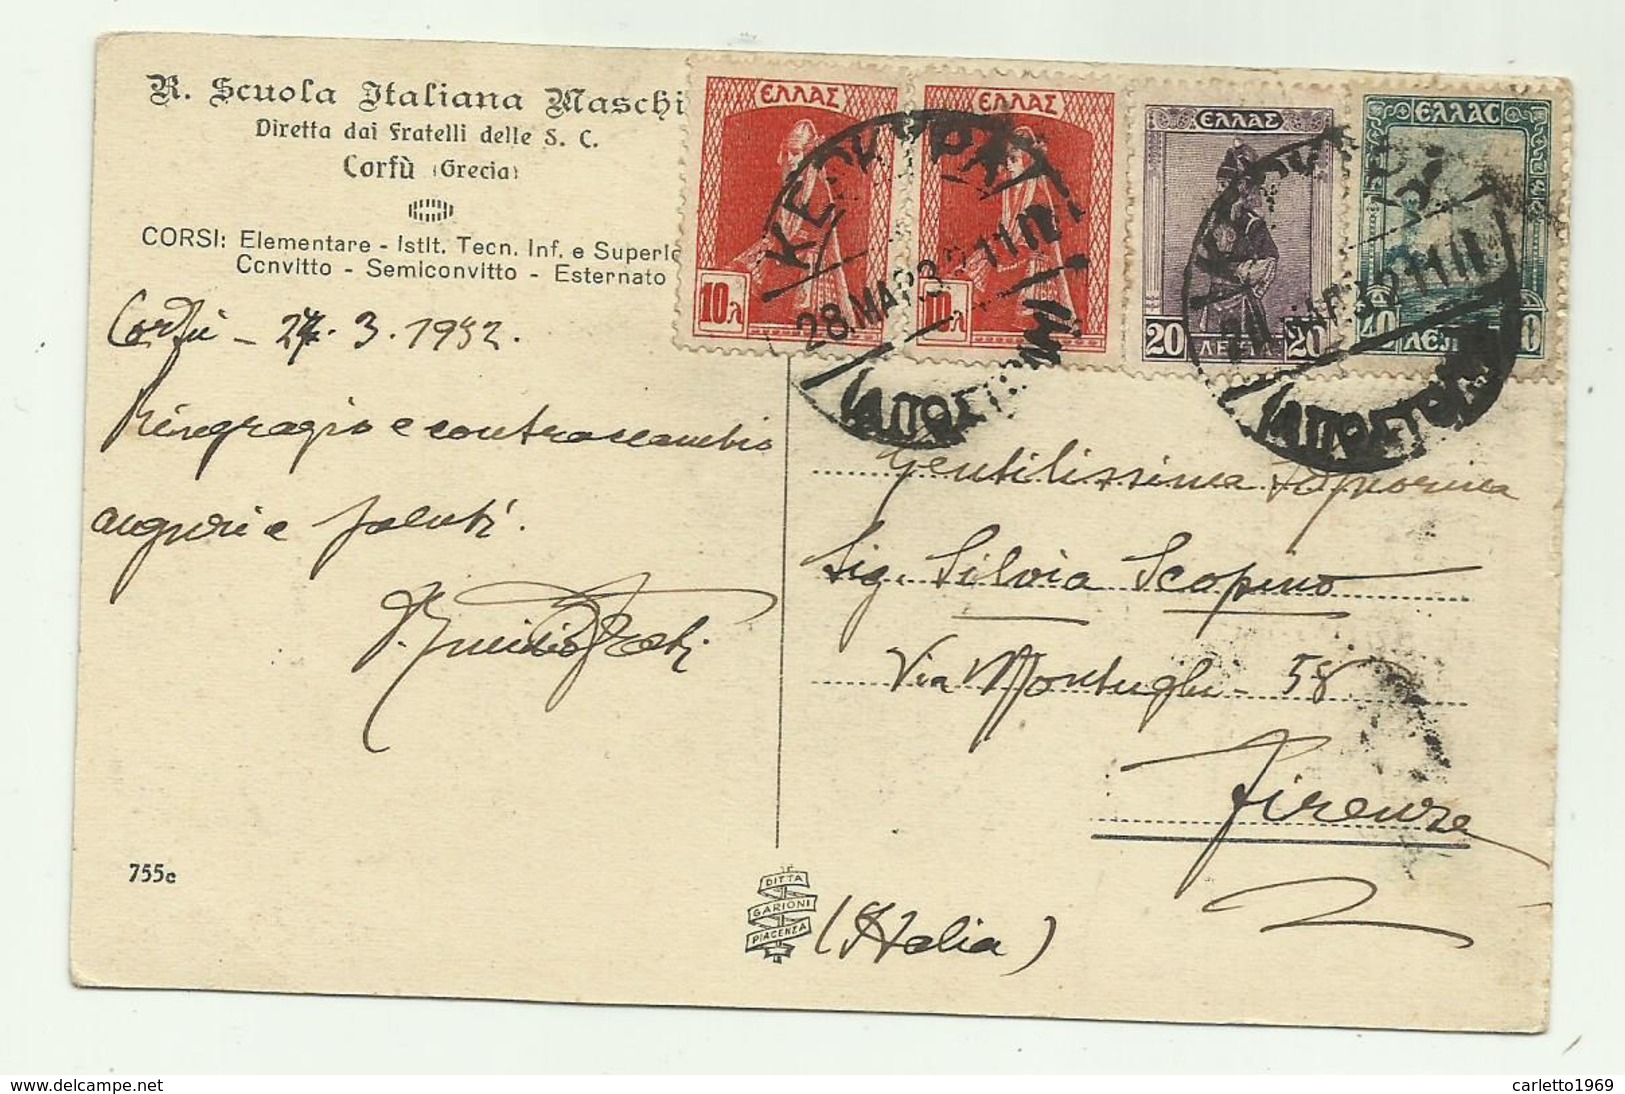 R. Scuola Italiana Maschi
Diretta dai Fratelli delle S. C.
Corfù (Grecia)
CORSI: Elementare - Istit. Tecn. Inf. e Superio
Convitto - Semiconvitto - Esternato
Corfù - 27. 3. 1932.
Ringrazio e contraccambio
auguri e saluti.
ΕΛΛΑΣ
10λ
ΕΛΛΑΣ
10λ
ΕΛΛΑΣ
20 ΛΕΠΤΑ 20
ΕΛΛΑΣ
40 ΛΕΠ
ΚΕΡΚΥΡΑ
28.MAR32.11
ΑΠΟΣΤΟΛΗ
ΚΕΡΚΥΡΑ
32.11
ΑΠΟΣΤΟΛΗ
Gentilissima Signorina
Sig. Silvia Scopino
Via Montughi - 58
Firenze
(Italia)
755c
DITTA
GARIONI
PIACENZA
delcampe.net
carletto1969